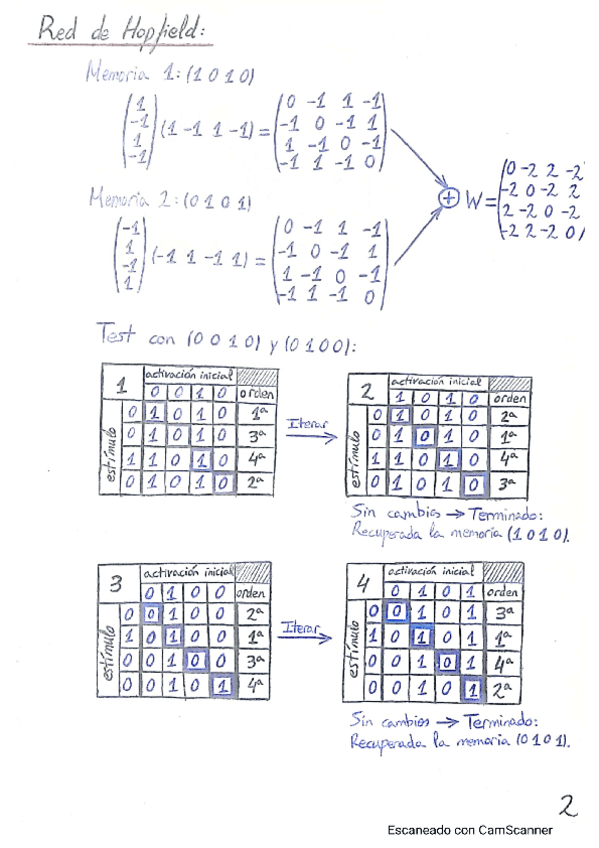 Red de Hopfield:
Memoria 1: (1 0 1 0)
(1 -1 1 -1) (1 -1 1 -1) =
0 -1 1 -1
-1 0 -1 1
1 -1 0 -1
-1 1 -1 0
Memoria 2: (0 1 0 1)
(-1 1 -1 1) (-1 1 -1 1) =
0 -1 1 -1
-1 0 -1 1
1 -1 0 -1
-1 1 -1 0
+ W =
0 -2 2 -2
-2 0 -2 2
2 -2 0 -2
-2 2 -2 0
Test con (0 0 1 0) y (0 1 0 0):
1 activación inicial
0 0 1 0 orden
estímulo
0 1 0 1 0 1ª
0 1 0 1 0 3ª
1 1 0 1 0 4ª
0 1 0 1 0 2ª
Iterar
2 activación inicial
1 0 1 0 orden
estímulo
0 1 0 1 0 2ª
0 1 0 1 0 1ª
1 1 0 1 0 4ª
0 1 0 1 0 3ª
Sin cambios → Terminado:
Recuperada la memoria (1 0 1 0).
3 activación inicial
0 1 0 0 orden
estímulo
0 0 1 0 0 2ª
1 0 1 0 0 1ª
0 0 1 0 0 3ª
0 0 1 0 1 4ª
Iterar
4 activación inicial
0 1 0 1 orden
estímulo
0 0 1 0 1 3ª
1 0 1 0 1 1ª
0 0 1 0 1 4ª
0 0 1 0 1 2ª
Sin cambios → Terminado:
Recuperada la memoria (0 1 0 1).
2
Escaneado con CamScanner